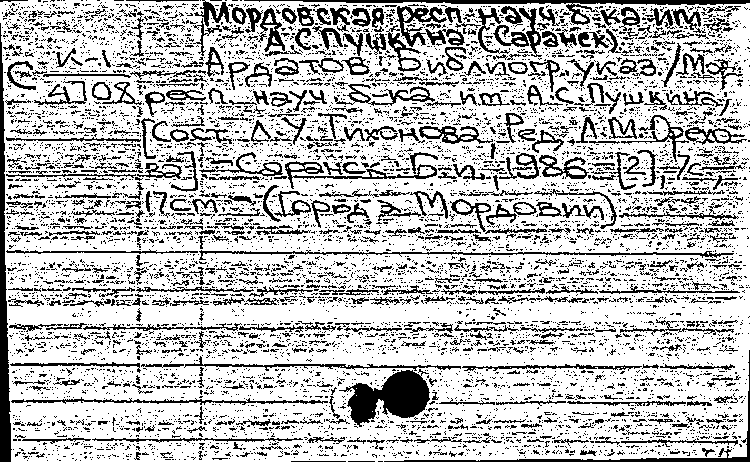 Мордовская респ. науч. б-ка им.
А.С.Пушкина (Саранск)
С К-1
4708
Ардатов: Библиогр. указ. / Мор.
респ. науч. б-ка им. А.С.Пушкина;
[Сост. Л.У.Тихонова; Ред. Л.М.Орехо-
ва] - Саранск: Б.и., 1986 - [2], 7с,
17см - (Города Мордовии)